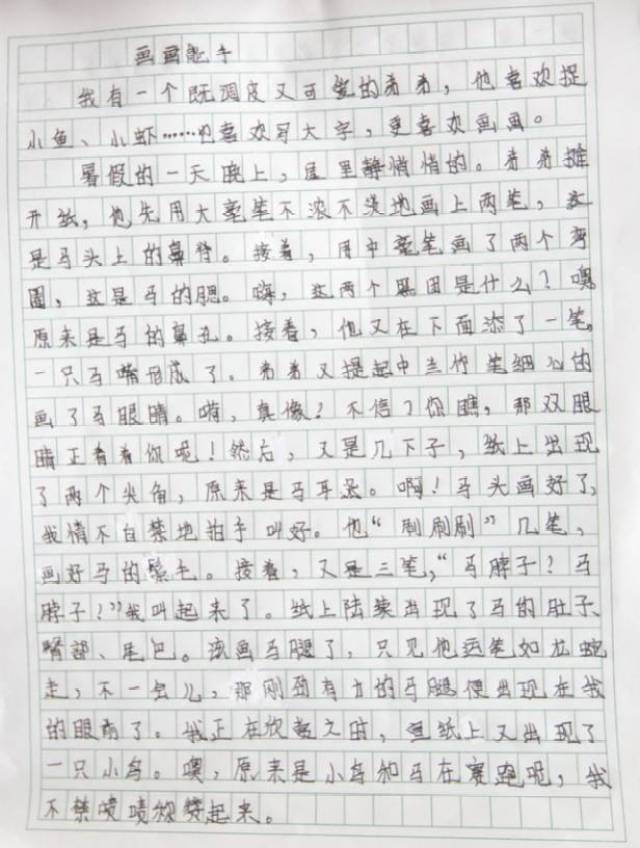 画画能手
我有一个既调皮又可爱的弟弟，他喜欢捉
小鱼、小虾……也喜欢写大字，更喜欢画画。
暑假的一天晚上，屋里静悄悄的。弟弟摊
开纸，他先用大毫笔不浓不淡地画上两笔，这
是马头上的鼻脊。接着，用中毫笔画了两个弯
圈，这是马的腮。嗨，这两个黑团是什么？噢
原来是马的鼻孔。接着，他又在下面添了一笔，
一只马嘴形成了。弟弟又提起中兰竹笔细心的
画了马眼睛。嗬，真像！不信？你瞧，那双眼
睛正看着你呢！然后，又是几下子，纸上出现
了两个尖角，原来是马耳朵。啊！马头画好了，
我情不自禁地拍手叫好。他“刷刷刷”几笔，
画好马的鬃毛。接着，又是三笔，“马脖子？马
脖子？”我叫起来了。纸上陆续出现了马的肚子、
臀部、尾巴。该画马腿了，只见他运笔如龙蛇
走，不一会儿，那刚劲有力的马腿便出现在我
的眼前了。我正在欣赏之时，但纸上又出现了
一只小鸟。噢，原来是小鸟和马在赛跑呢，我
不禁啧啧称赞起来。